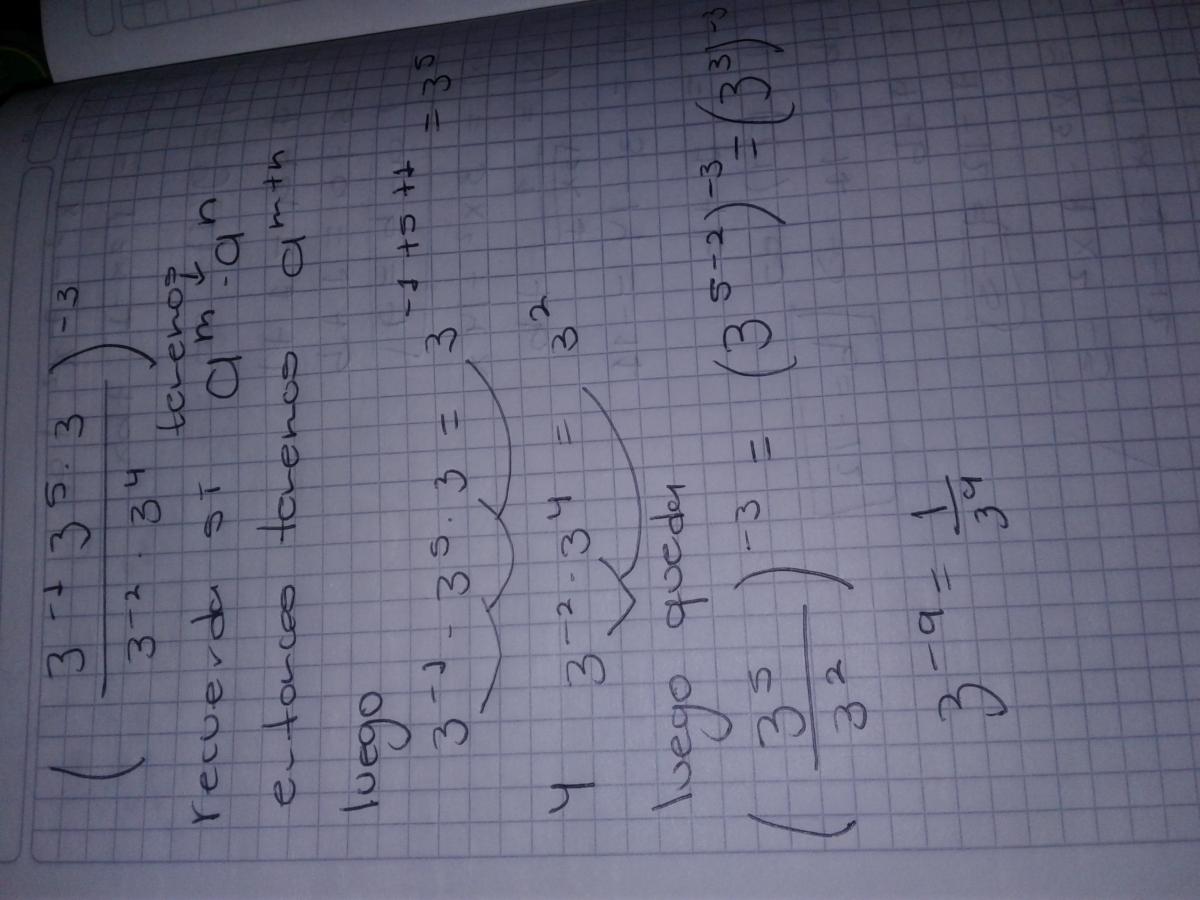 ( 3⁻¹ 3⁵ · 3 / 3⁻² · 3⁴ )⁻³
tenemos
recuerda si aᵐ · aⁿ
entonces tenemos aᵐ⁺ⁿ
luego
3⁻¹ · 3⁵ · 3 = 3⁻¹⁺⁵⁺¹ = 3⁵
y 3⁻² · 3⁴ = 3²
luego queda
( 3⁵ / 3² )⁻³ = (3⁵⁻²)⁻³ = (3³)⁻³
3⁻⁹ = 1 / 3⁹